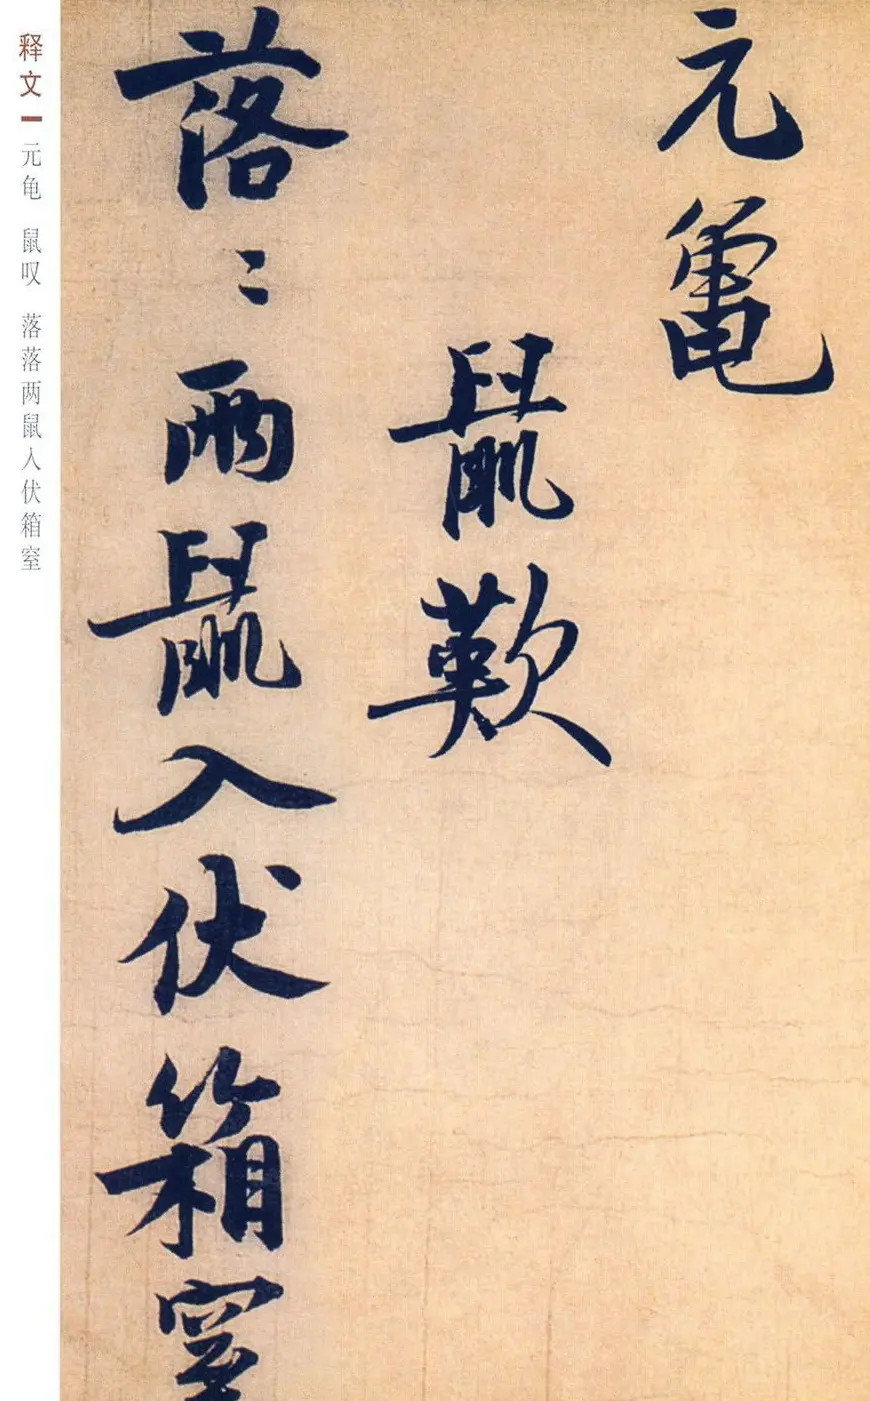 元龜
鼠歎
落〻兩鼠入伏箱窒
释文 元龟 鼠叹 落落两鼠入伏箱窒